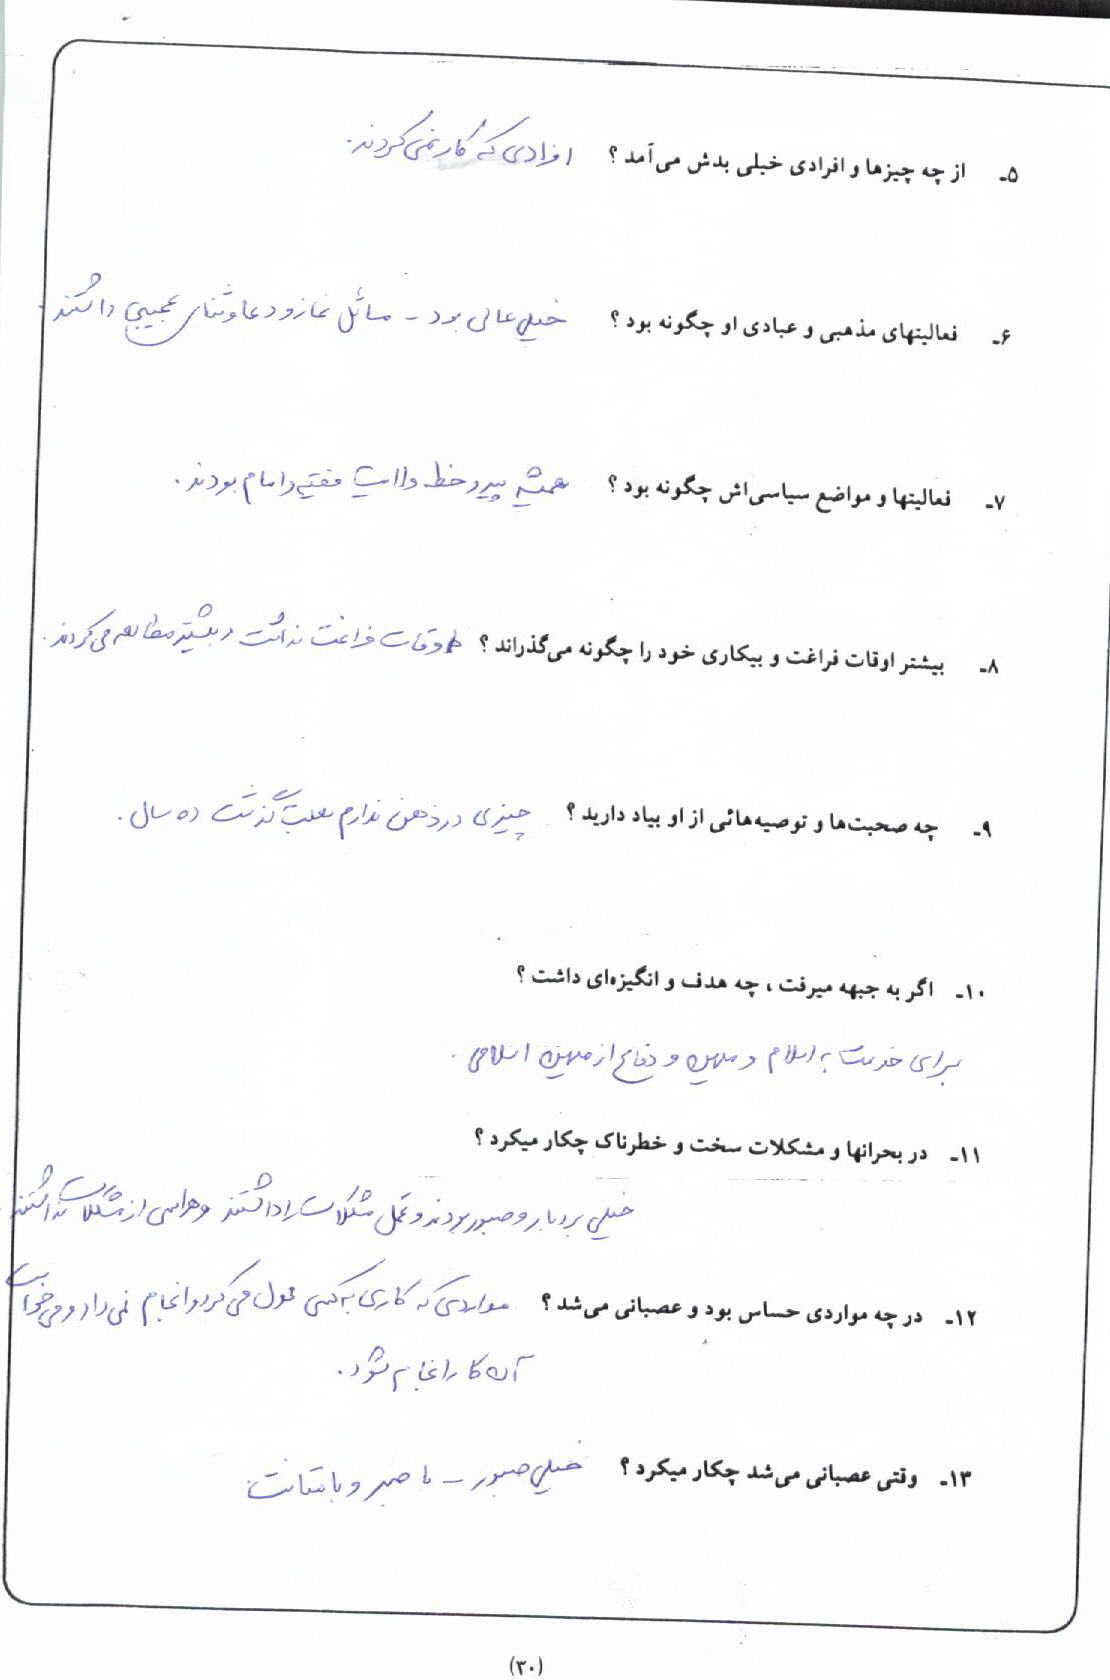 ۵ـ از چه چیزها و افرادی خیلی بدش می‌آمد ؟ افرادی که کار نمی کردند.
۶ـ فعالیتهای مذهبی و عبادی او چگونه بود ؟ خیلی عالی بود - مسائل نماز و دعا و ثنای عجیبی داشتند.
۷ـ فعالیتها و مواضع سیاسی‌اش چگونه بود ؟ همیشه پیرو خط ولایت فقیه و امام بودند.
۸ـ بیشتر اوقات فراغت و بیکاری خود را چگونه می‌گذراند ؟ اوقات فراغت نداشت و بیشتر مطالعه می کردند.
۹ـ چه صحبت‌ها و توصیه‌هائی از او بیاد دارید ؟ چیزی در ذهن ندارم بعلت گذشت ده سال.
۱۰ـ اگر به جبهه میرفت ، چه هدف و انگیزه‌ای داشت ؟
برای خدمت به اسلام و میهن و دفاع از میهن اسلامی.
۱۱ـ در بحرانها و مشکلات سخت و خطرناک چکار میکرد ؟
خیلی بردبار و صبور بودند و تحمل مشکلات را داشتند و هراسی از مشکلات نداشتند
۱۲ـ در چه مواردی حساس بود و عصبانی می‌شد ؟ مواردی که کاری به کسی محول می کرد و انجام نمی داد و می خواست
آن کار انجام شود.
۱۳ـ وقتی عصبانی می‌شد چکار میکرد ؟ خیلی صبور - با صبر و با متانت.
(۳۰)